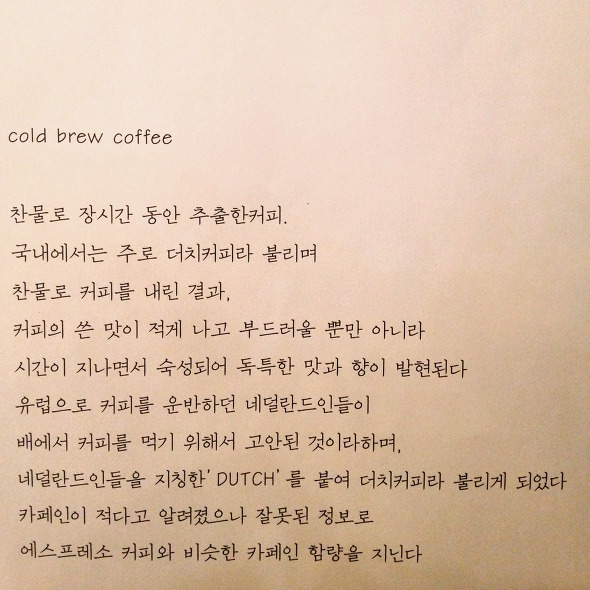 cold brew coffee
찬물로 장시간 동안 추출한커피.
국내에서는 주로 더치커피라 불리며
찬물로 커피를 내린 결과,
커피의 쓴 맛이 적게 나고 부드러울 뿐만 아니라
시간이 지나면서 숙성되어 독특한 맛과 향이 발현된다
유럽으로 커피를 운반하던 네덜란드인들이
배에서 커피를 먹기 위해서 고안된 것이라하며,
네덜란드인들을 지칭한' DUTCH' 를 붙여 더치커피라 불리게 되었다
카페인이 적다고 알려졌으나 잘못된 정보로
에스프레소 커피와 비슷한 카페인 함량을 지닌다